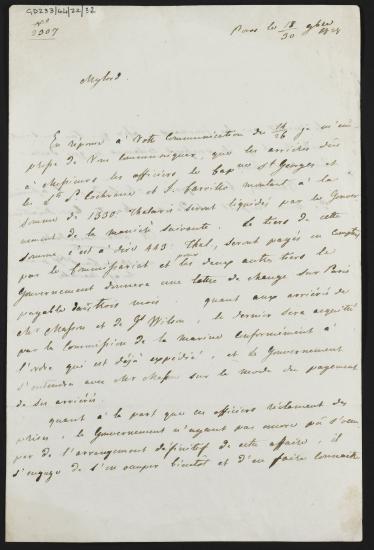 GD233/44/22/32
No
2907
Poros le 18/30 9bre 1828
Mylord.
En réponse à Votre Communication du 14/26 je m'em-
presse de Vous communiquer, que les arriérés dus
à Messieurs les officiers les Capnes St Georges et
les Sts L. Cochrane et J. montant à la
somme de 1330. Thalaris seront liquidés par le Gouver-
nement de la manière suivante. Le tiers de cette
somme c'est à dire 443 Thal, seront payés en comptant
par le Commissariat et pour les deux autres tiers le
Gouvernement donnera une lettre de change sur Paris
payable dans trois mois. quant aux arriérés de
Mr Masson et de Gl Wilson, le dernier sera acquitté
par la Commission de la marine conformément à
l'ordre qui est déjà expédié, et le Gouvernement
s'entendra avec Mr Masson sur le mode du payement
de ses arriérés.
quant à la part que ces officiers réclament des
prises, le Gouvernement n'ayant pas encore pû s'occu-
per de l'arrangement définitif de cette affaire, il
s'engage de s'en occuper bientôt et d'en faire connaitre